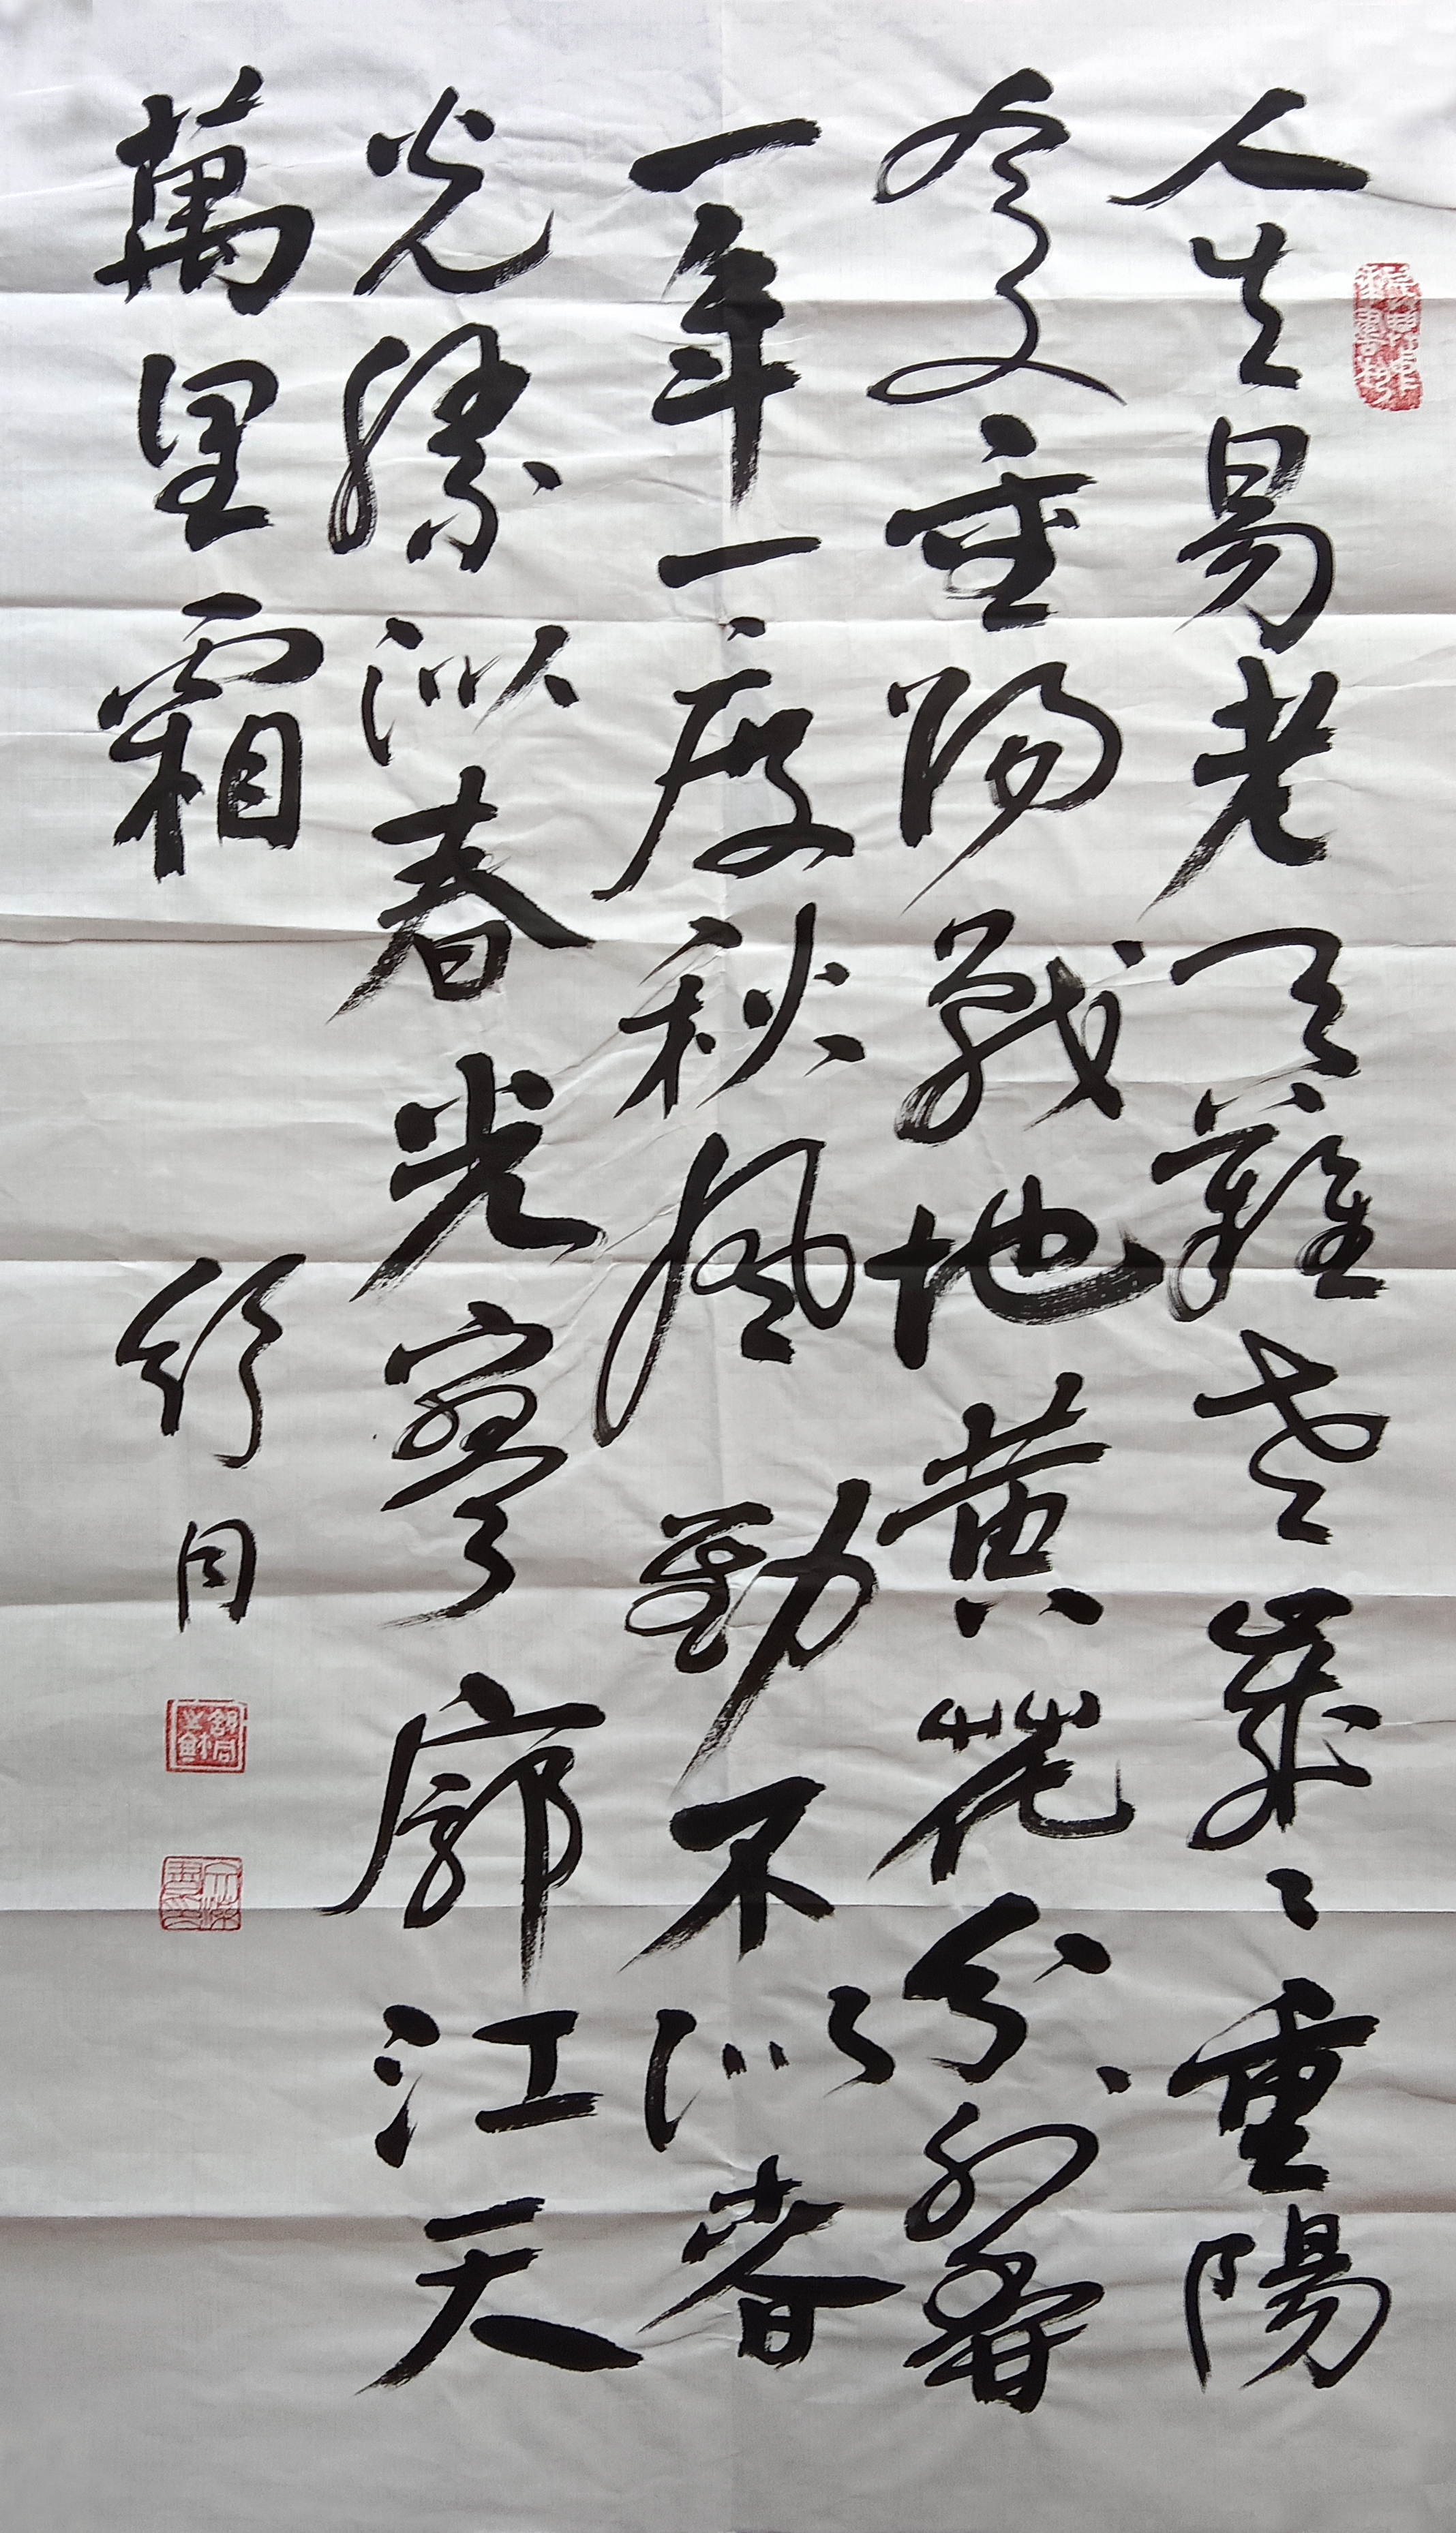 人生易老天難老歲々重陽
今又重陽戰地黃花分外香
一年一度秋風勁不似春
光勝似春光寥廓江天
萬里霜
舒同
舒同